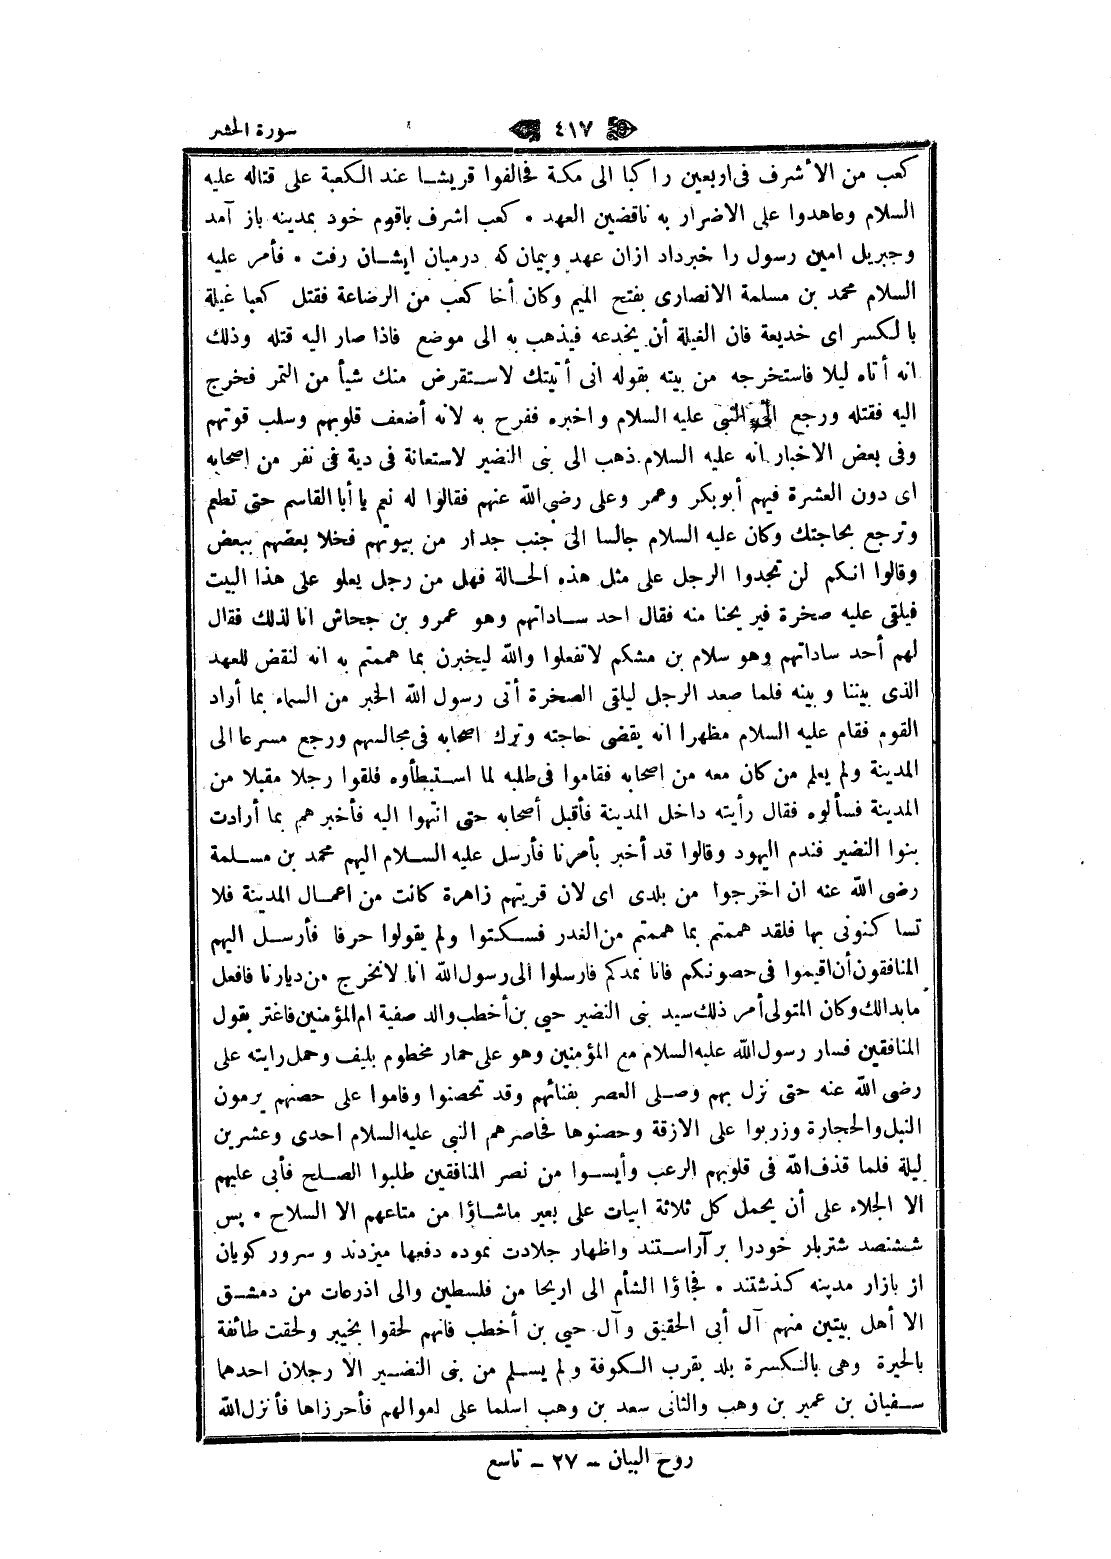 سورة الحشر
٤١٧
كعب من الأشرف فى اربعين راكبا الى مكة فحالفوا قريشا عند الكعبة على قتاله عليه
السلام وعاهدوا على الاضرار به ناقضين العهد * كعب اشرف باقوم خود بمدينه باز آمد
وجبريل امين رسول را خبرداد ازان عهد وپيمان كه درميان ايشان رفت * فأمر عليه
السلام محمد بن مسلمة الانصارى بفتح الميم وكان أخا كعب من الرضاعة فقتل كعبا غيلة
بالكسر اى خديعة فان الغيلة أن يخدعه فيذهب به الى موضع فاذا صار اليه قتله وذلك
انه أتاه ليلا فاستخرجه من بيته بقوله انى أتيتك لاستقرض منك شيأ من التمر فخرج
اليه فقتله ورجع الى النبى عليه السلام واخبره ففرح به لانه أضعف قلوبهم وسلب قوتهم
وفى بعض الاخبار انه عليه السلام ذهب الى بنى النضير لاستعانة فى دية فى نفر من اصحابه
اى دون العشرة فيهم أبوبكر وعمر وعلى رضى الله عنهم فقالوا له نعم يا أبا القاسم حتى تطعم
وترجع بحاجتك وكان عليه السلام جالسا الى جنب جدار من بيوتهم فخلا بعضهم ببعض
وقالوا انكم لن تجدوا الرجل على مثل هذه الحالة فهل من رجل يعلو على هذا البيت
فيلقى عليه صخرة فيريحنا منه فقال احد ساداتهم وهو عمرو بن جحاش انا لذلك فقال
لهم أحد ساداتهم وهو سلام بن مشكم لاتفعلوا والله ليخبرن بما هممتم به انه لنقض للعهد
الذى بيننا وبينه فلما صعد الرجل ليلقى الصخرة أتى رسول الله الخبر من السماء بما أراد
القوم فقام عليه السلام مظهرا انه يقضى حاجته وترك اصحابه فى مجالسهم ورجع مسرعا الى
المدينة ولم يعلم من كان معه من اصحابه فقاموا فى طلبه لما استبطأوه فلقوا رجلا مقبلا من
المدينة فسألوه فقال رأيته داخل المدينة فأقبل أصحابه حتى انتهوا اليه فأخبرهم بما أرادت
بنوا النضير فندم اليهود وقالوا قد أخبر بأمرنا فأرسل عليه السلام اليهم محمد بن مسلمة
رضى الله عنه ان اخرجوا من بلدى اى لان قريتهم زاهرة كانت من اعمال المدينة فلا
تساكنونى بها فلقد هممتم بما هممتم من الغدر فسكتوا ولم يقولوا حرفا فأرسل اليهم
المنافقون أن اقيموا فى حصونكم فانا نمدكم فارسلوا الى رسول الله انا لانخرج من ديارنا فافعل
مابدالك وكان المتولى أمر ذلك سيد بنى النضير حيى بن أخطب والد صفية ام المؤمنين فاغتر بقول
المنافقين فسار رسول الله عليه السلام مع المؤمنين وهو على حمار مخطوم بليف وحمل رايته على
رضى الله عنه حتى نزل بهم وصلى العصر بفنائهم وقد تحصنوا وقاموا على حصنهم يرمون
النبل والحجارة وزربوا على الازقة وحصنوها فحاصرهم النبى عليه السلام احدى وعشرين
ليلة فلما قذف الله فى قلوبهم الرعب وأيسوا من نصر المنافقين طلبوا الصلح فأبى عليهم
الا الجلاء على أن يحمل كل ثلاثة ابيات على بعير ماشاؤا من متاعهم الا السلاح * پس
ششصد شتربار خودرا برآراستند واظهار جلادت نموده دفعها ميزدند و سرور كويان
از بازار مدينه كذشتند * فجاؤا الشأم الى اريحا من فلسطين والى اذرعات من دمشق
الا أهل بيتين منهم آل أبى الحقيق وآل حيى بن أخطب فانهم لحقوا بخيبر ولحقت طائفة
بالحيرة وهى بالكسرة بلد بقرب الكوفة ولم يسلم من بنى النضير الا رجلان احدهما
سفيان بن عمير بن وهب والثانى سعد بن وهب اسلما على اموالهم فأحرزاها فأنزل الله
روح البيان – ٢٧ – تاسع